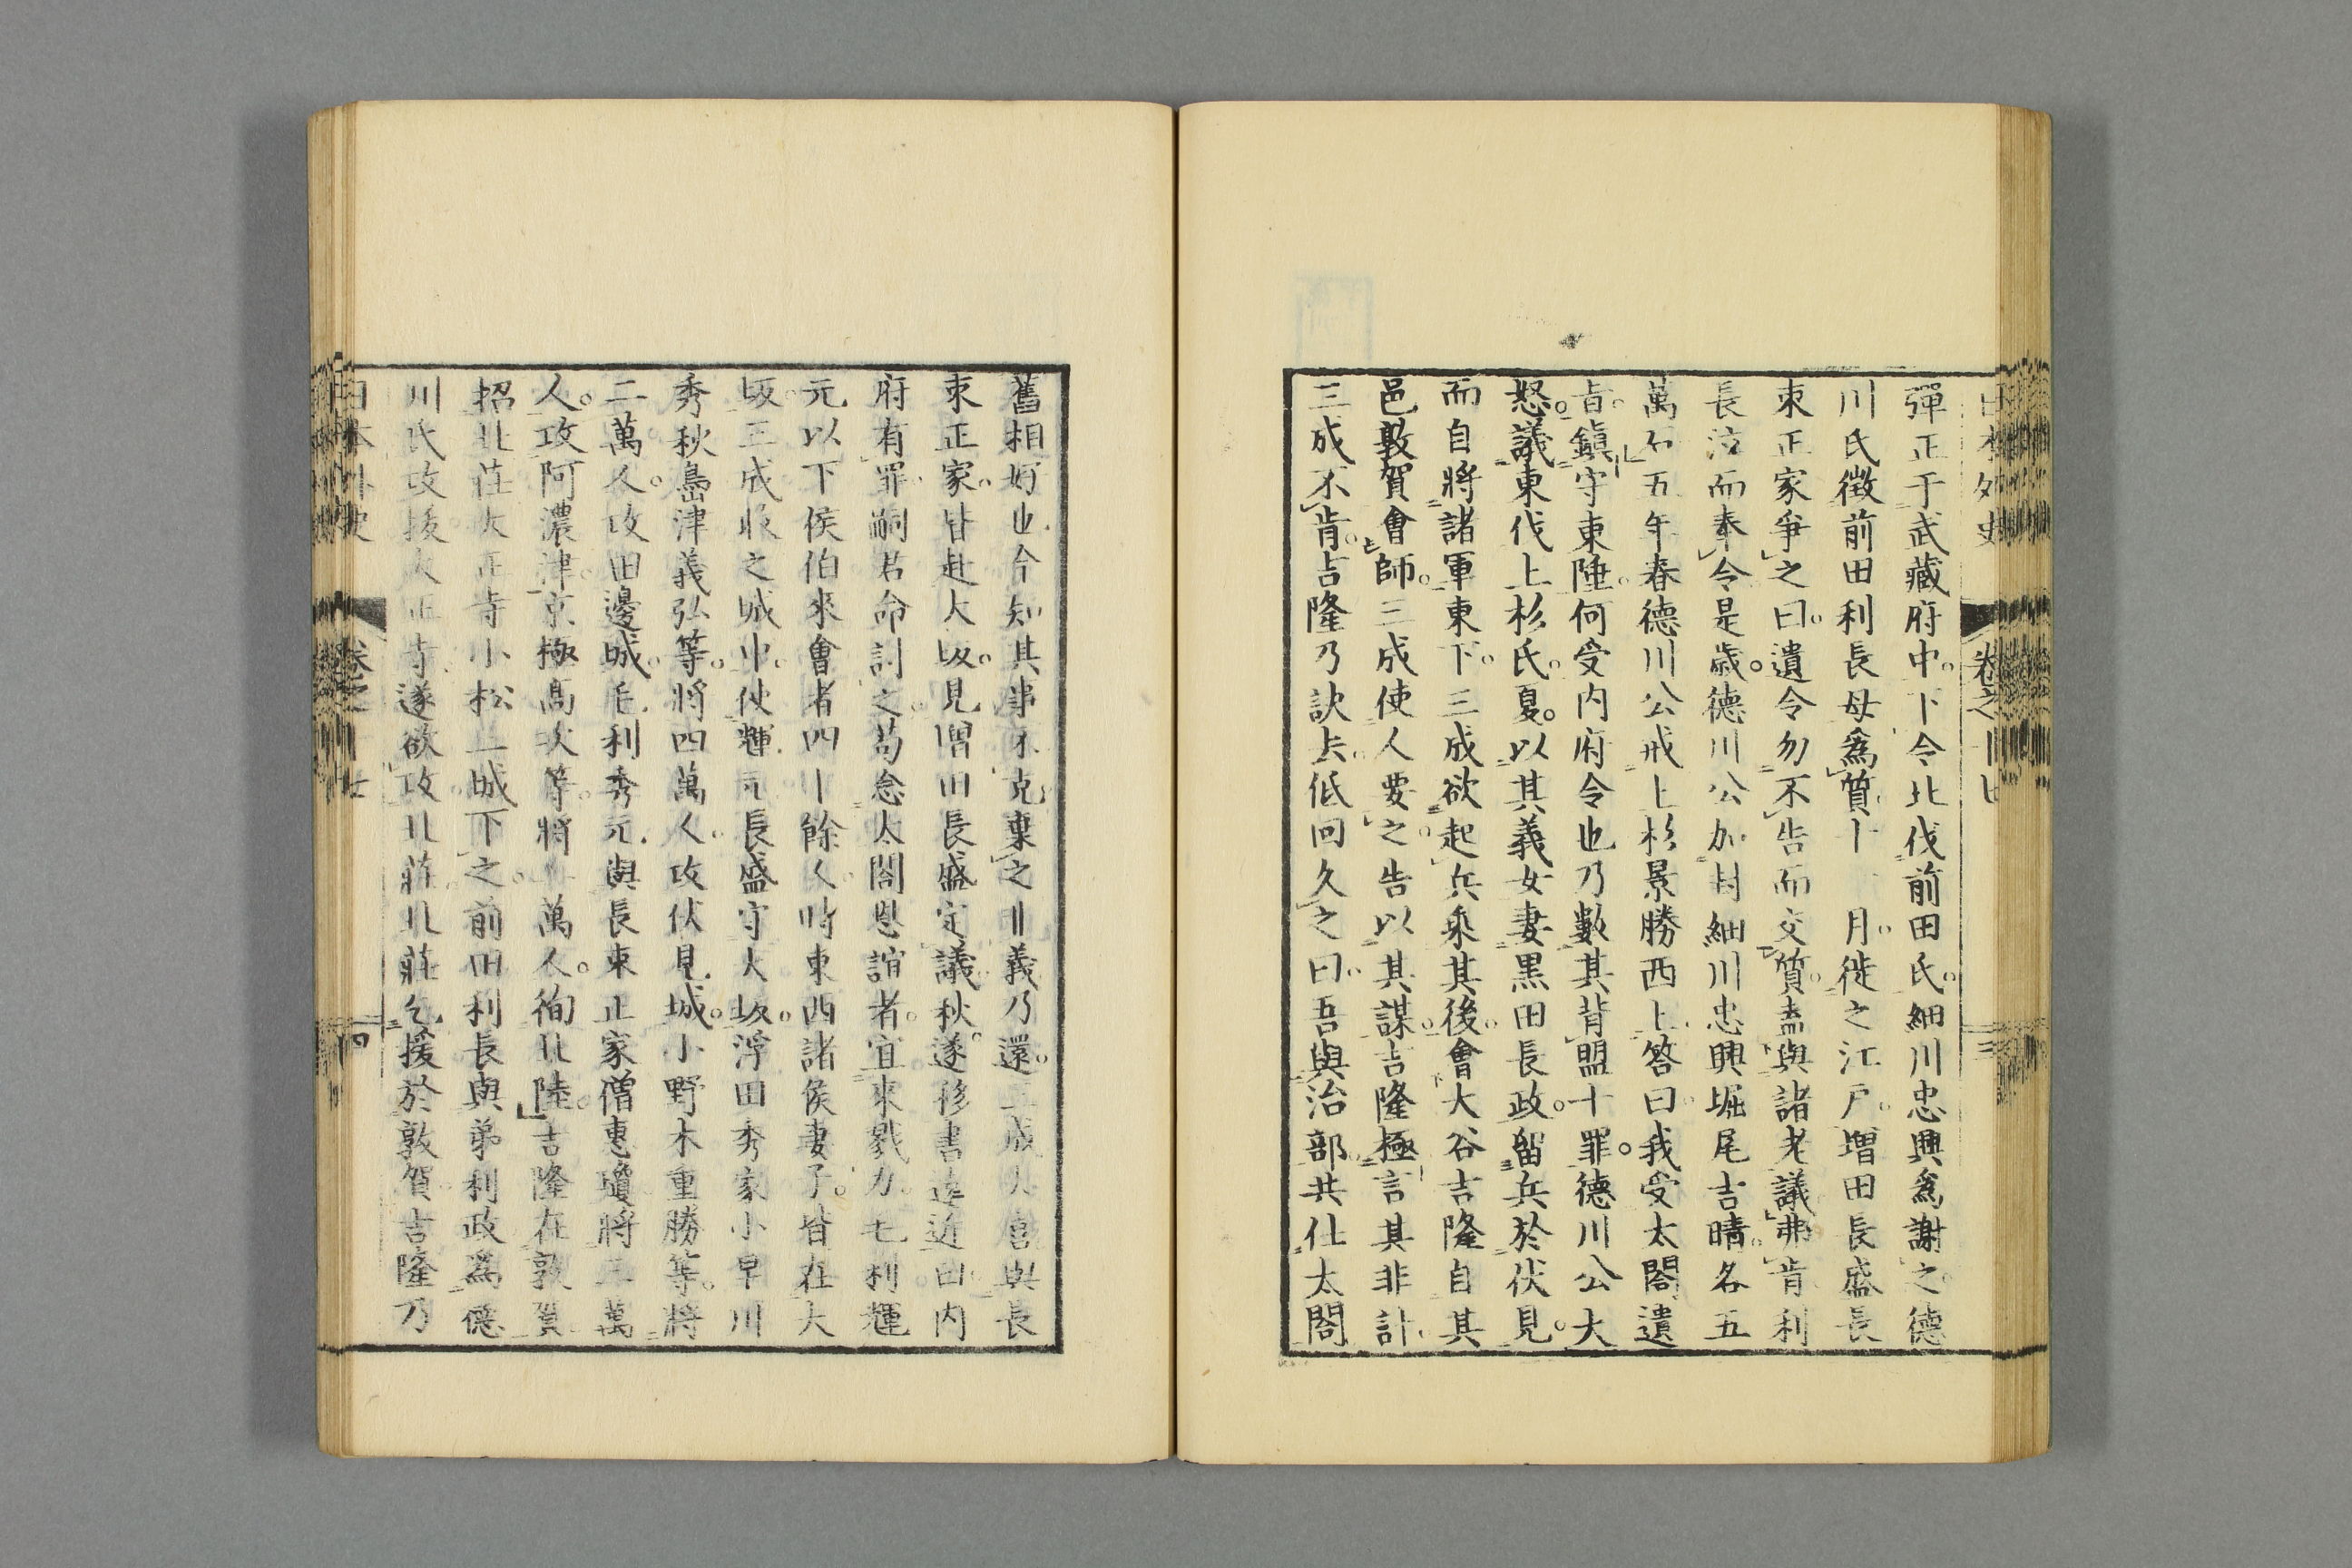 日本外史
卷之十七
三
彈正于武藏府中。下令北伐前田氏。細川忠興爲謝之。德
川氏徵前田利長母爲質。十一月。徙之江戶。增田長盛長
束正家爭之曰。遺令勿不告而交質。盍與諸老議。弗肯。利
長泣而奉令。是歲。德川公加封細川忠興堀尾吉晴。各五
萬石。五年春。德川公戒上杉景勝西上。答曰。我受太閤遺
旨。鎭守東陲。何受內府令也。乃數其背盟十罪。德川公大
怒。議東伐上杉氏。夏。以其義女妻黑田長政。留兵於伏見。
而自將諸軍東下。三成欲起兵乘其後。會大谷吉隆自其
邑敦賀會師。三成使人要之。告以其謀。吉隆極言其非計。
三成不肯。吉隆乃訣去。低回久之曰。吾與治部共仕太閤
舊相好也。今知其事不克。棄之非義。乃還。三成大喜。與長
束正家。皆赴大坂。見增田長盛定議。秋。遂移書遠近曰。內
府有罪。嗣君命討之。苟念太閤恩誼者。宜來戮力。毛利輝
元以下侯伯來會者。四十餘人。時東西諸侯妻子。皆在大
坂。三成收之城中。使輝元長盛守大坂。浮田秀家小早川
秀秋島津義弘等。將四萬人。攻伏見城。小野木重勝等。將
二萬人。攻田邊城。毛利秀元與長束正家僧惠瓊。將三萬
人。攻阿濃津。京極高次等。將萬人。徇北陸。吉隆在敦賀。
招北莊大正寺小松二城下之。前田利長與弟利政爲德
川氏攻拔大正寺。遂欲攻北莊。北莊乞援於敦賀。吉隆乃
日本外史
卷之十七
四